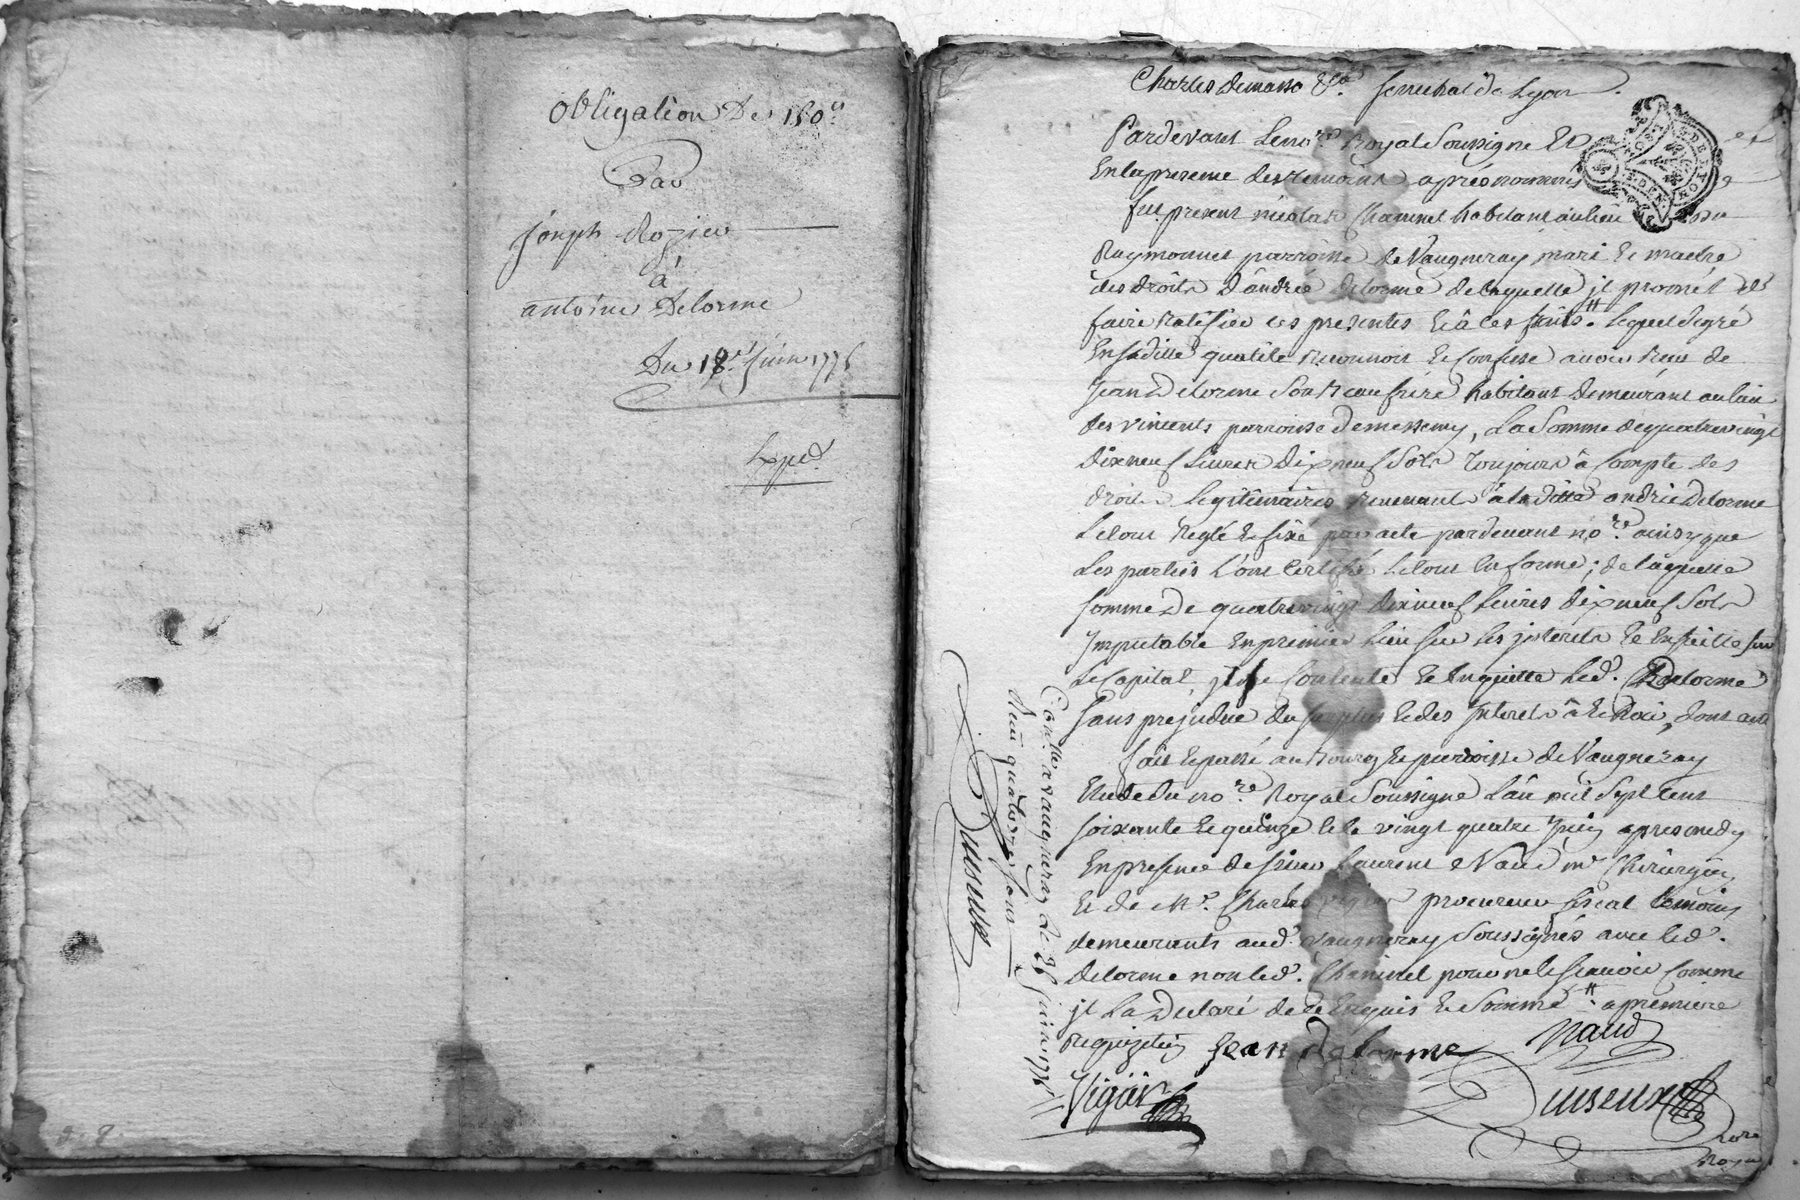 Obligation De 150ll
Par
joseph Rozier
à
antoine Delorme
Du 18e juin 1775
Exped.
Charles Demasso &ca. senechal de Lyon.
Pardevant Le nore. Royal Soussigné Et
En la presence des temoins apres nommés
fut present nicolas Chaninet habitant au lieu
Raymonnet parroisse de Vaugneray mari Et maitre
des droits d'andrée delorme de laquelle jl promet de
faire Ratifier ces presentes Et à ces fruits. Lequel de gré
En sa ditte qualité Reconnoit Et Confesse avoir Reçu de
Jean Delorme Son Beaufrere habitant demeurant au lieu
des vincents parroisse de messemy, La Somme de quatre vingt
dix neuf Livres dix neuf Sols toujours à Compte des
droits Legitimaires Revenant à la ditte andrée Delorme
Le tout Reglé Et fixé par acte pardevant nore. ainsy que
Les parties L'ont Certifié Le tout En forme; de laquelle
Somme De quatre vingt dix neuf Livres dix neuf Sols
Imputable En premier Lieu sur Les jnterets Et Ensuitte sur
Le Capital, jl se Contente Et En quitte Led. Delorme
Sans prejudice du surplus Et des jnterets à Echoir, dont acte
fait Et passé au Bourg Et parroisse de Vaugneray
Etude du nore. Royal Soussigné L'an mil Sept Cent
soixante Et quinze Et le vingt quatre Juin apres midy
En presence de sieur Laurent Naud me. Chirurgien
Et de Mr. Charles Vigier procureur fiscal temoins
demeurants aud. Vaugneray Soussignés avec Led.
delorme non Led. Chaninet pour ne le Scavoir Comme
jl La Declaré de ce Enquis Et Sommé. a premiere
Requisition Jean delorme Naud
Vigier Duseux
nore
Royal
Conllé a vaugneray Le 28 juin 1775
Reçu quatorze sous
Duseux